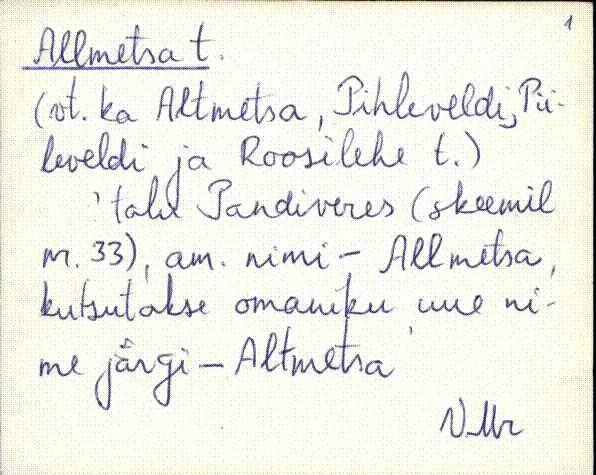 1
Allmetsa t.
(vt. ka Altmetsa, Pihleveldi, Pii-
leveldi ja Roosilehe t.)
'talu Pandiveres (skeemil
nr. 33), am. nimi – Allmetsa,
kutsutakse omaniku uue ni-
me järgi – Altmetsa'
V.Mr